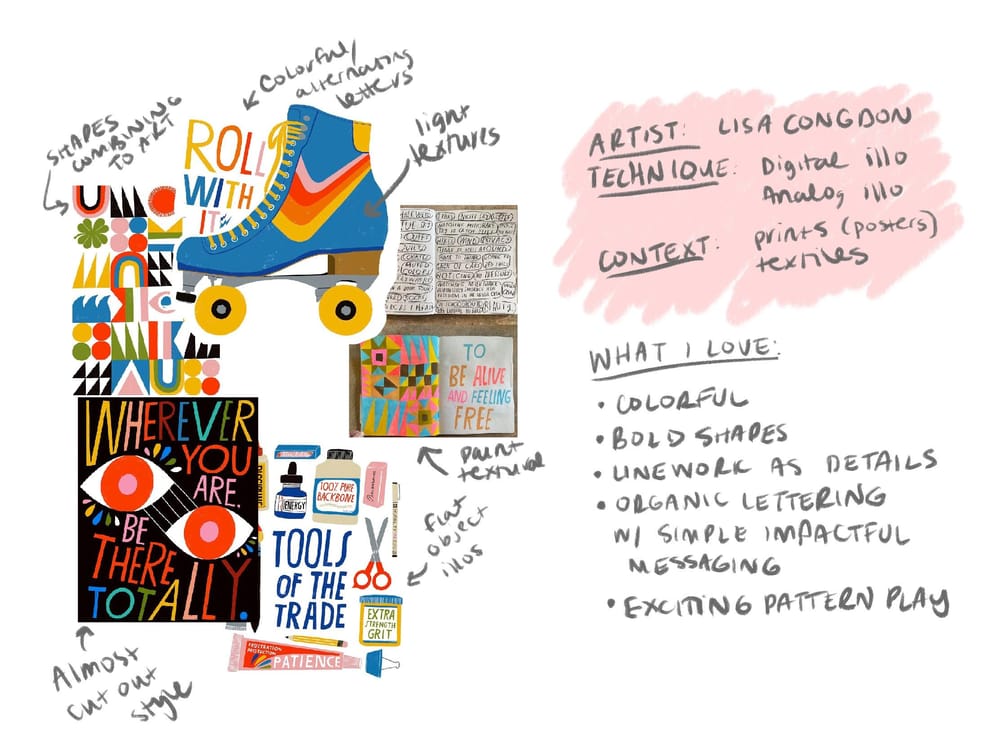 Colorful/
alternating
letters
SHAPES
COMBINING
TO ART
light
textures
ROLL
WITH
IT
TO
BE ALIVE
AND FEELING
FREE
paint
textural
WHEREVER
YOU
ARE.
BE
THERE
TOTALLY.
Almost
cut out
style
ENERGY
100% PURE
BACKBONE
TOOLS
OF THE
TRADE
EXTRA
STRENGTH
GRIT
PATIENCE
flat
object
illos
ARTIST: LISA CONGDON
TECHNIQUE: Digital illo
Analog illo
CONTEXT: prints (posters)
textiles
WHAT I LOVE:
• COLORFUL
• BOLD SHAPES
• LINEWORK AS DETAILS
• ORGANIC LETTERING
W/ SIMPLE IMPACTFUL
MESSAGING
• EXCITING PATTERN PLAY